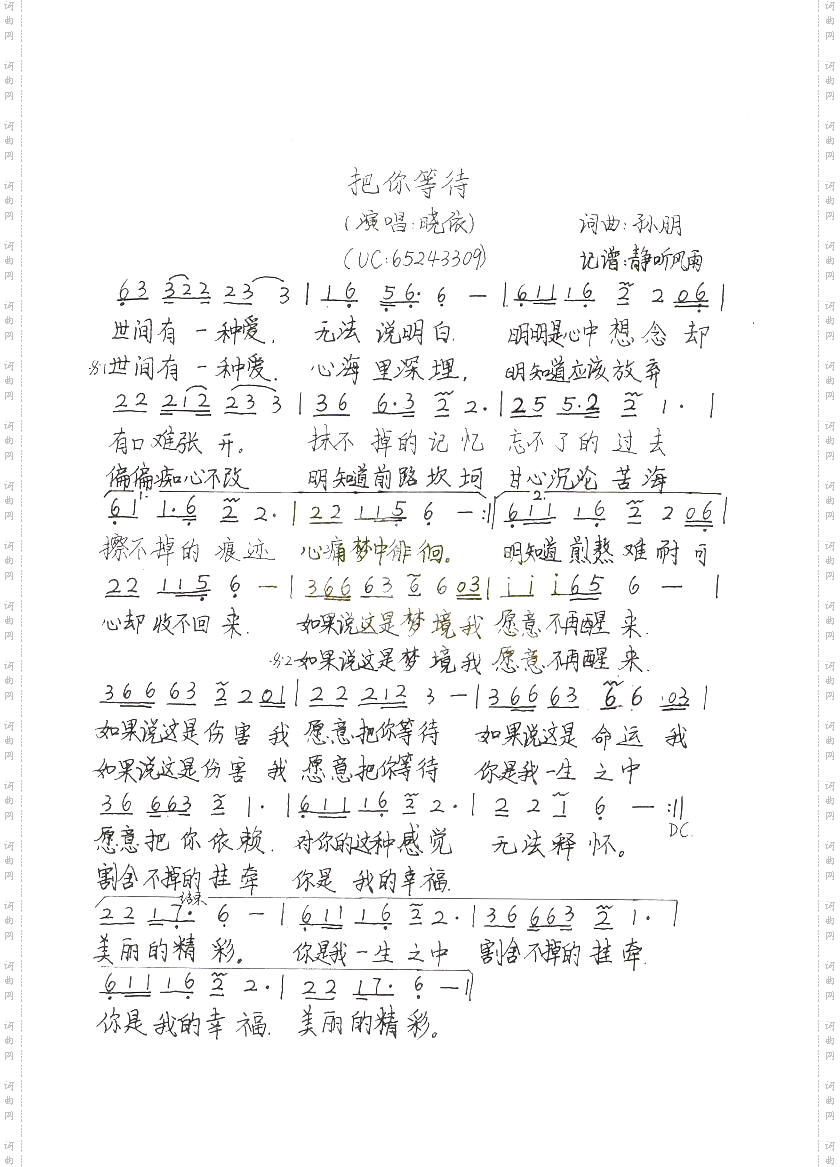 把你等待
(演唱:晓依) 词曲:孙朋
(UC:65243309) 记谱:静听风雨
63 322 23 3 | 16 56· 6 — | 611 16 2 2 06 |
世间有一种爱. 无法说明白. 明明是心中想念却
世间有一种爱. 心海里深埋, 明知道应该放弃
22 212 23 3 | 36 6·3 2 2· | 25 5·2 2 1· |
有口难张开。 抹不掉的记忆 忘不了的过去
偏偏痴心不改 明知道前路坎坷 甘心沉沦苦海
1.
61 1·6 2 2· | 22 115 6 — :|| 2. 611 16 2 2 06 |
擦不掉的痕迹 心痛梦中徘徊。 明知道煎熬难耐可
22 115 6 — | 366 63 6 6 03 | i i i65 6 — |
心却收不回来. 如果说这是梦境我愿意不再醒来.
如果说这是梦境我愿意不再醒来.
366 63 2 2 01 | 22 212 3 — | 366 63 6 6 03 |
如果说这是伤害我愿意把你等待 如果说这是命运我
如果说这是伤害我愿意把你等待 你是我一生之中
36 663 2 1· | 611 16 2 2· | 2 2 1 6 — :||
DC.
愿意把你依赖. 对你的这种感觉 无法释怀。
割舍不掉的挂牵 你是我的幸福.
结束
22 17· 6 — | 611 16 2 2· | 36 663 2 1· |
美丽的精彩。 你是我一生之中 割舍不掉的挂牵.
611 16 2 2· | 22 17· 6 — |
你是我的幸福. 美丽的精彩。
词曲网